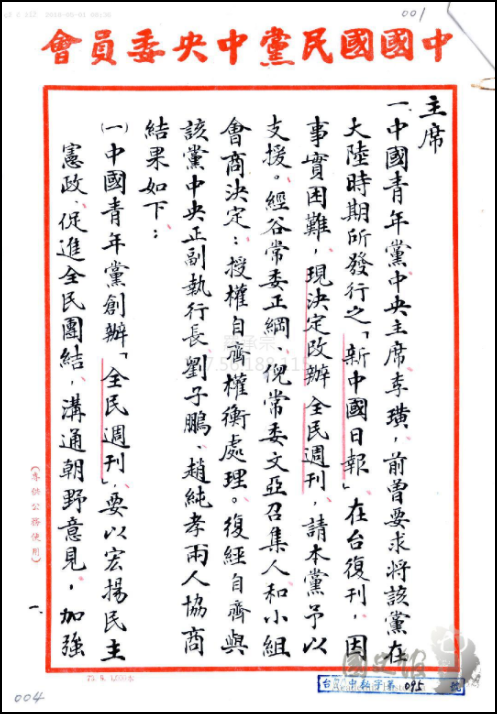 001
中國國民黨中央委員會
主席
一、中國青年黨中央主席李璜，前曾要求將該黨在
大陸時期所發行之「新中國日報」在台復刊，因
事實困難，現決定改辦全民週刊、請本黨予以
支援。經谷常委正綱、倪常委文亞召集人和小組
會商決定：授權自齊權衡處理。復經自齊與
該黨中央正副執行長劉子鵬、趙純孝兩人協商
結果如下：
㈠中國青年黨創辦「全民週刊」，要以宏揚民主
憲政、促進全民團結，溝通朝野意見，加強
（專供公務使用）
一、
095
號
004